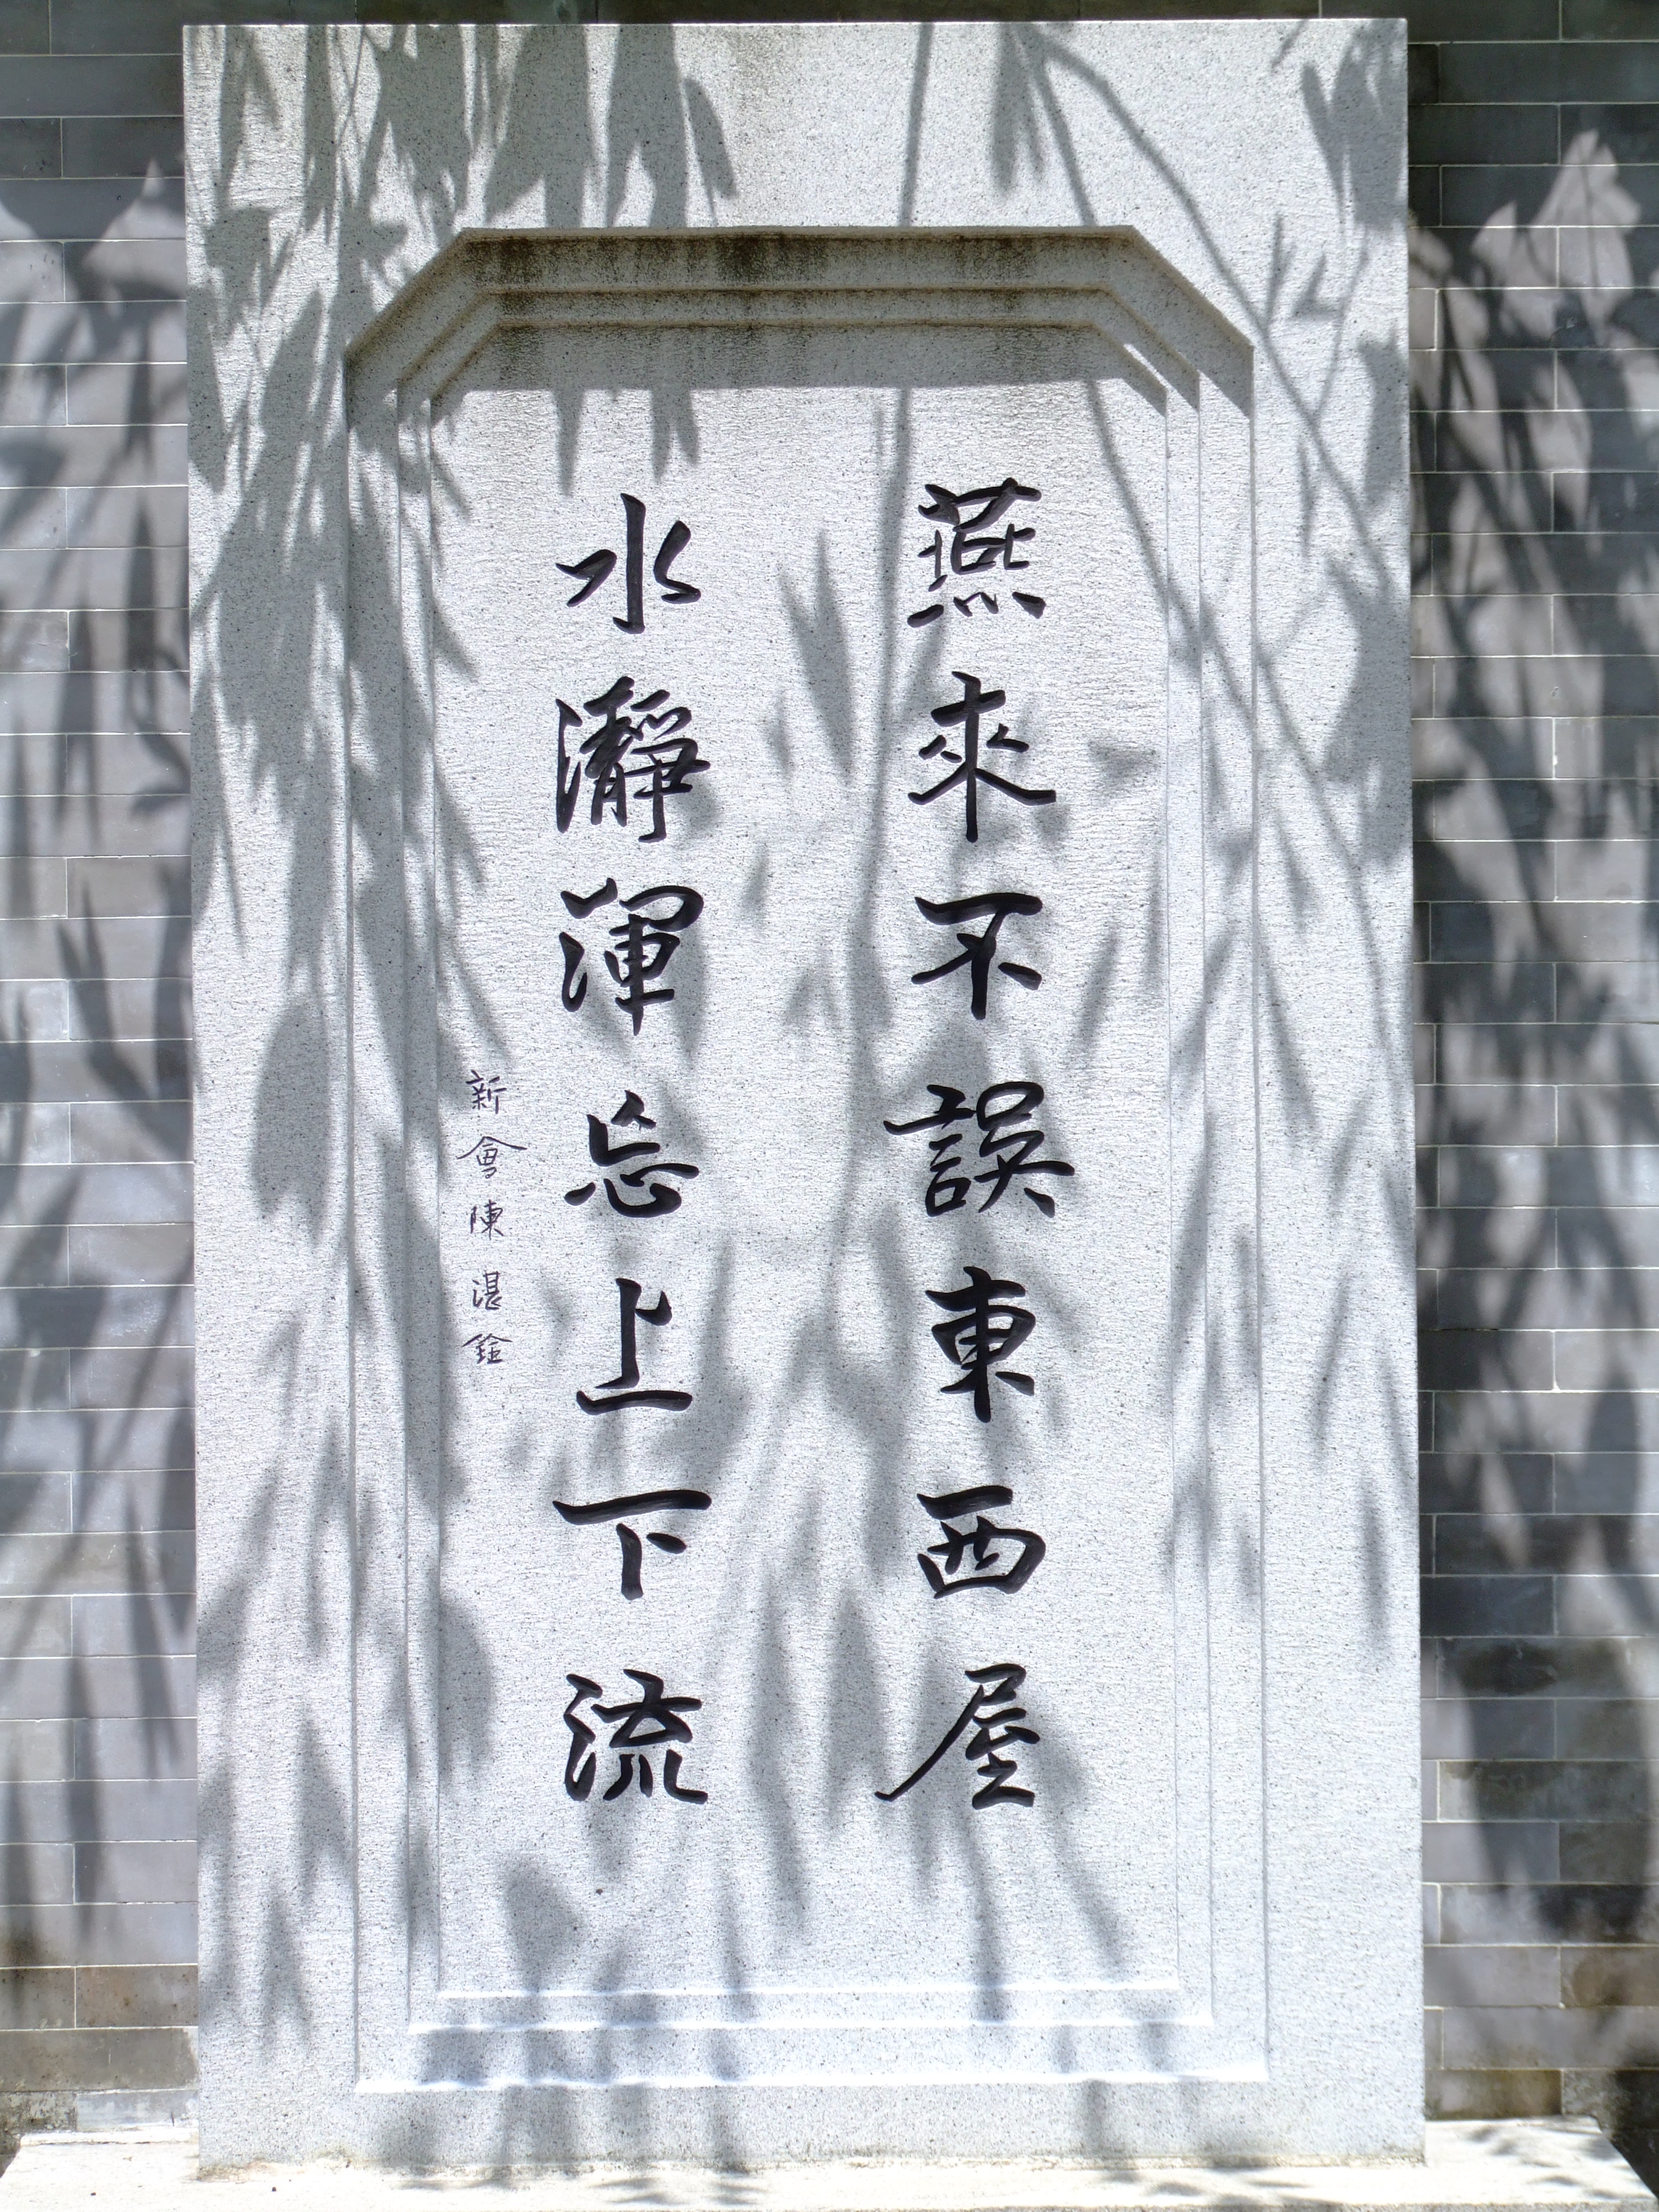 燕來不誤東西屋
水瀞渾忘上下流
新會陳湛銓